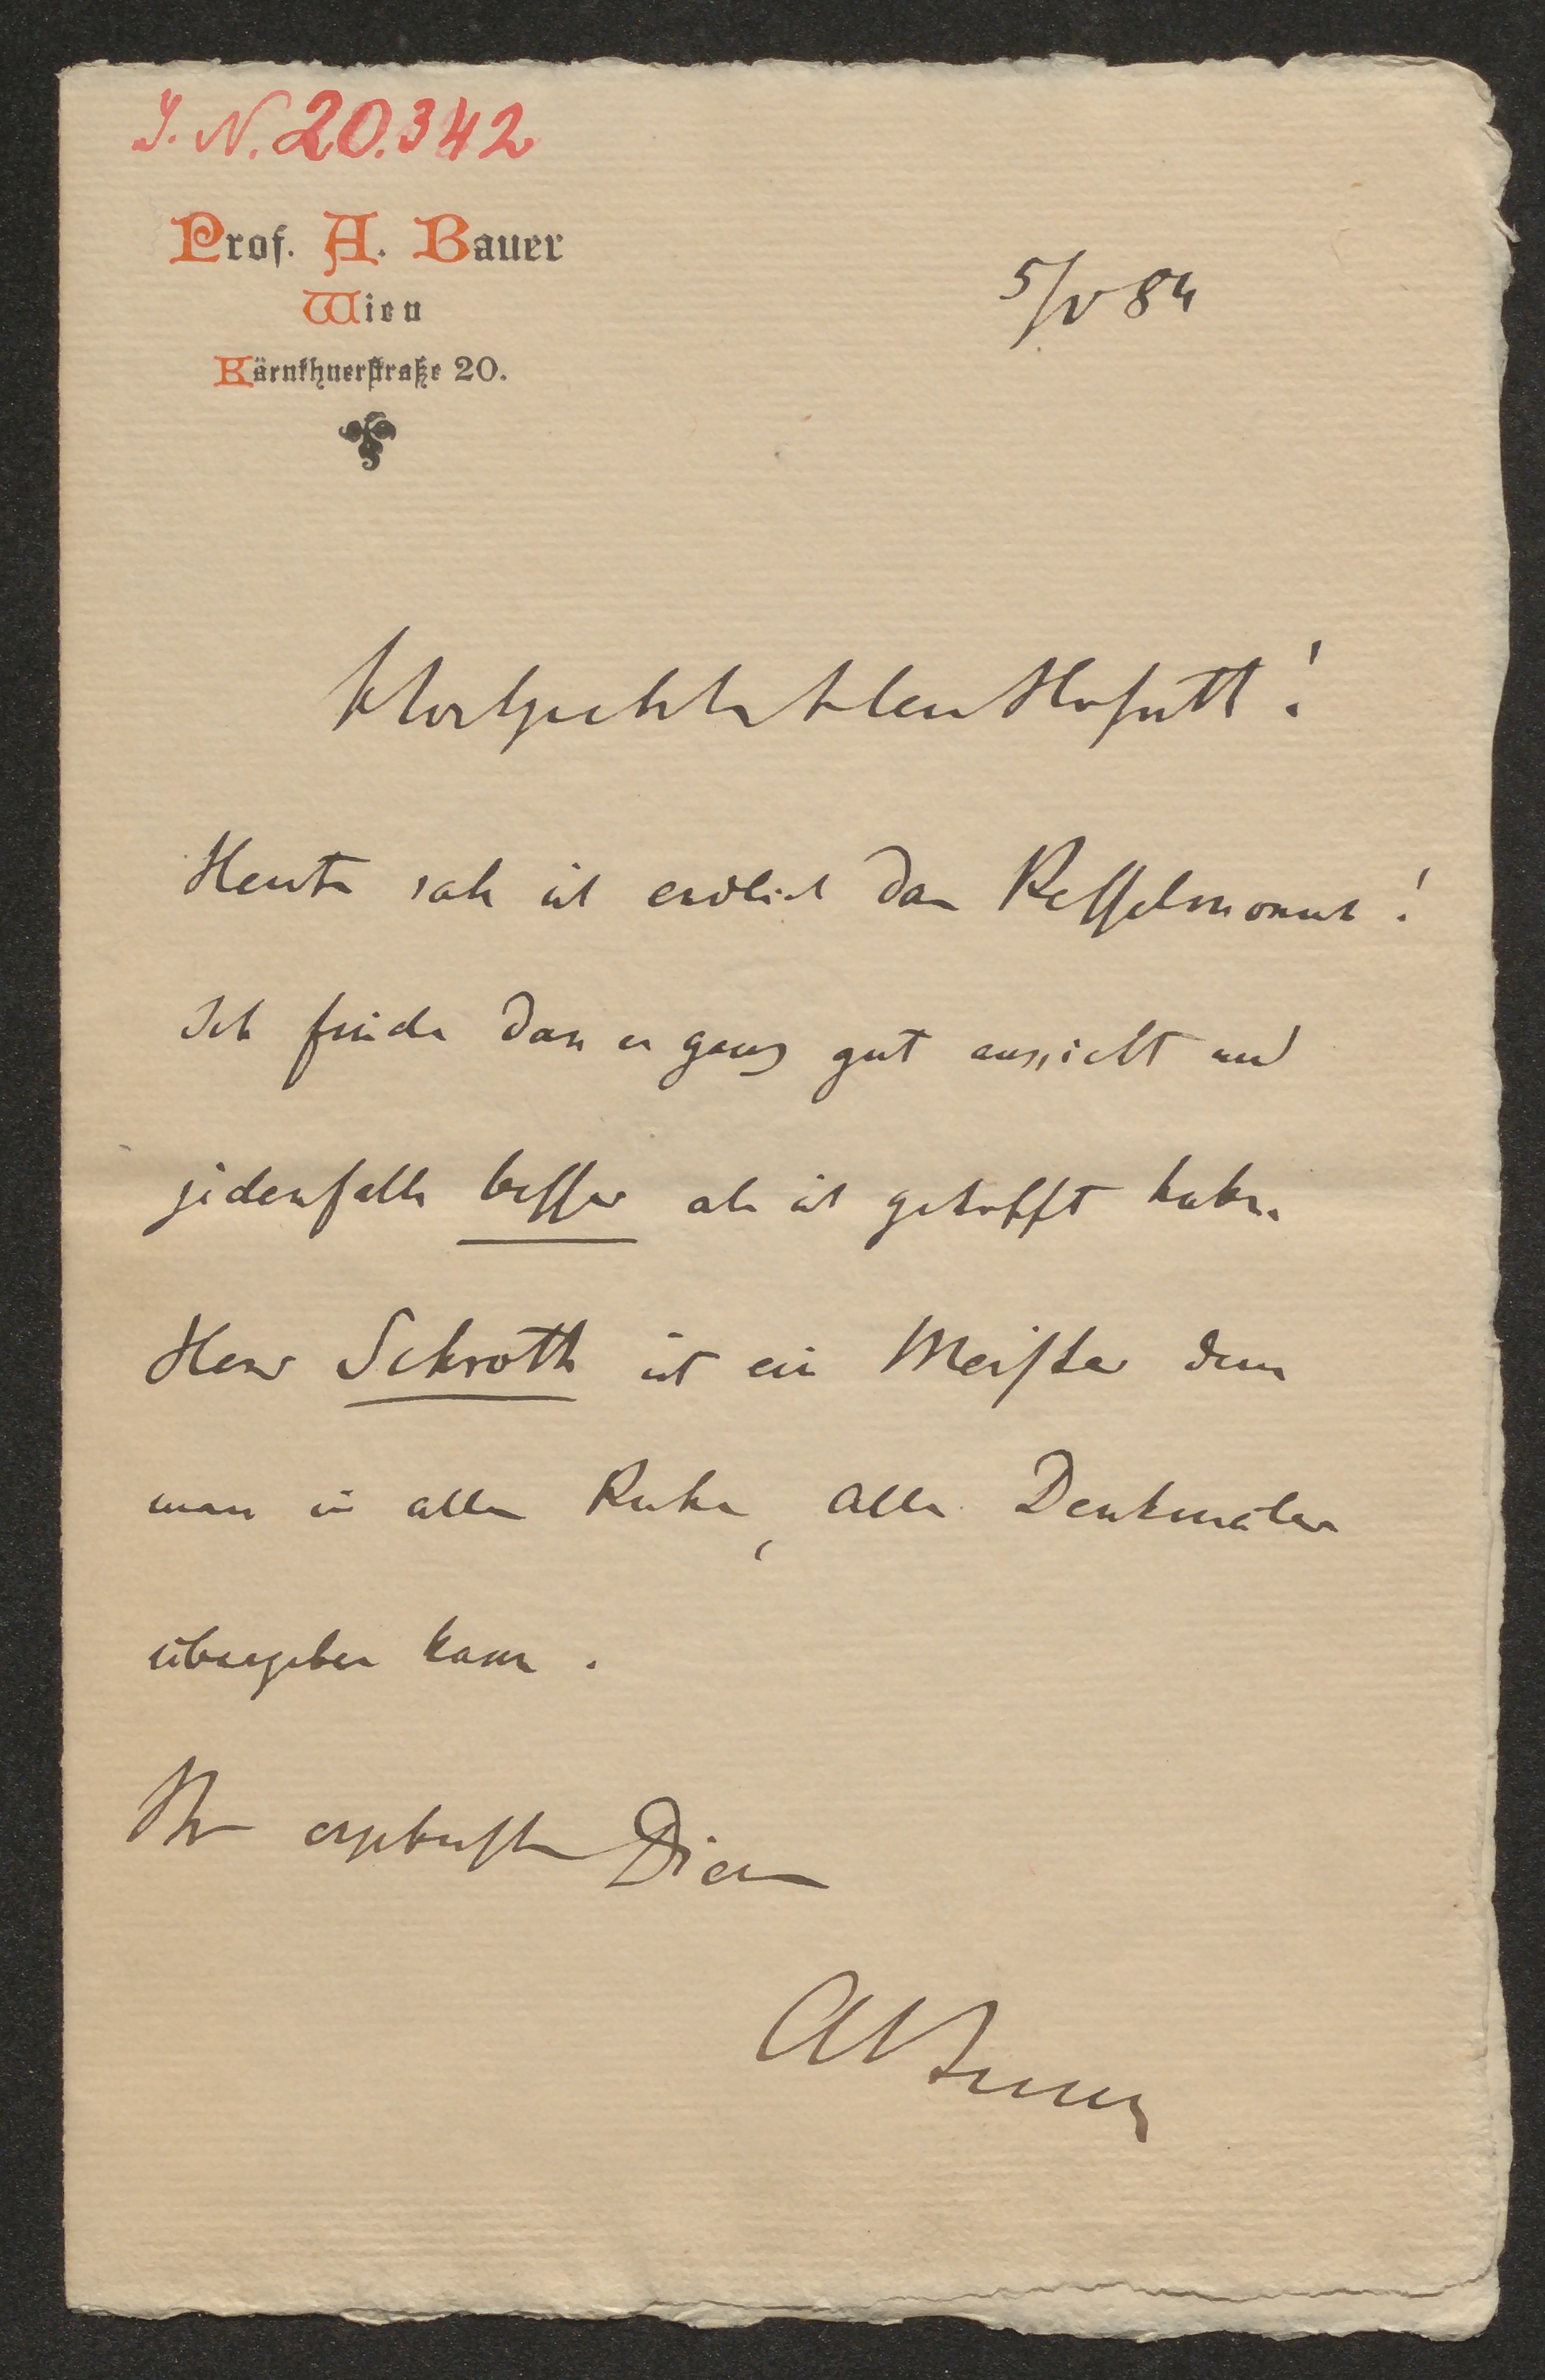 I. N. 20.342
Prof. A. Bauer
Wien
Kärnthnerstraße 20.
5/V 84
Hochgeehrter Herr Hofrath!
Heute sah ich endlich das Resselmonum!
Ich finde dass er ganz gut aussieht und
jedenfalls besser als ich gehofft habe.
Herr Schroth ist ein Meister dem
man in aller Ruhe, alle Denkmäler
übergeben kann.
Ihr ergebenster Diener
ABauer